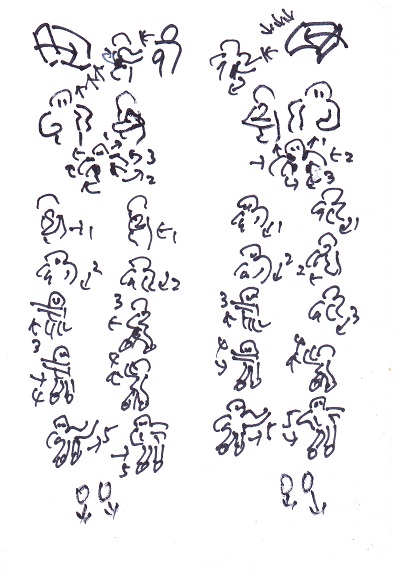 3 2
2 3
1 1 1 1
2 2 2 2
3 3 3 3
3 4 4 4
4
5 5 5
5